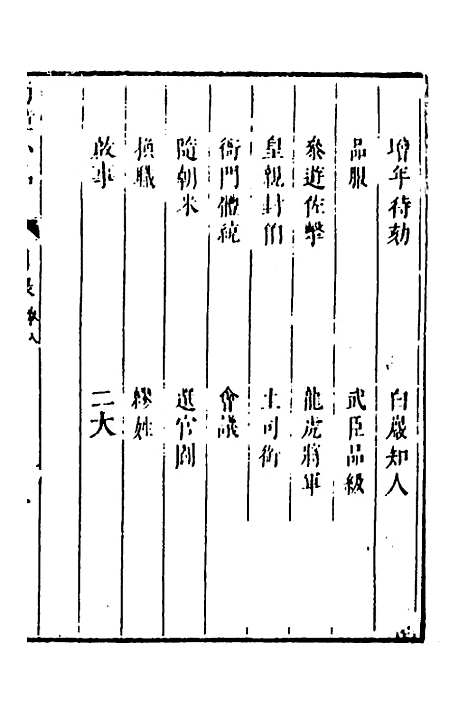 增年待劾 白巖知人
品服 武臣品級
參遊佐擊 龍虎將軍
皇親封伯 土司銜
衙門體統 會議
隨朝米 選官圖
換職 繆姓
啟事 二大